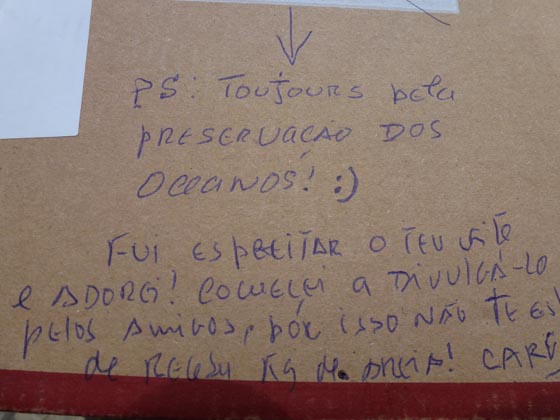 PS: TOUJOURS pela
PRESERVAÇÃO DOS
OCEANOS! :)
FUI ESPREITAR O TEU SITE
e ADOREI! COMECEI A DIVULGÁ-LO
pelos AMIGOS, por ISSO NÃO TE ES
de RECEBER Kg de AREIA! CARE